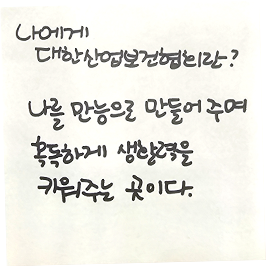 나에게
대한산업보건협회란?
나를 만능으로 만들어 주며
혹독하게 생활력을
키워주는 곳이다.